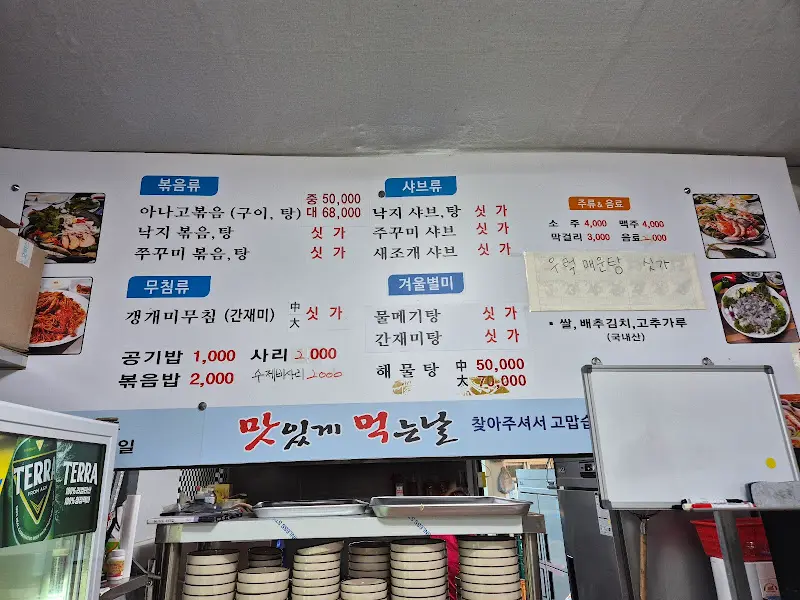 볶음류
아나고볶음 (구이, 탕) 중 50,000
대 68,000
낙지 볶음,탕 싯 가
쭈꾸미 볶음,탕 싯 가
샤브류
낙지 샤브,탕 싯 가
주꾸미 샤브 싯 가
새조개 샤브 싯 가
주류&음료
소 주 4,000 맥주 4,000
막걸리 3,000 음료 000
우럭 매운탕 싯가
• 쌀,배추김치,고추가루
(국내산)
무침류
갱개미무침 (간재미) 中 大 싯 가
공기밥 1,000 사리 2,000
볶음밥 2,000 수제비사리 2000
겨울별미
물메기탕 싯 가
간재미탕 싯 가
해물탕 中 50,000
大 70,000
일 맛있게 먹는날 찾아주셔서 고맙습
TERRA
FROM AGT
TERRA